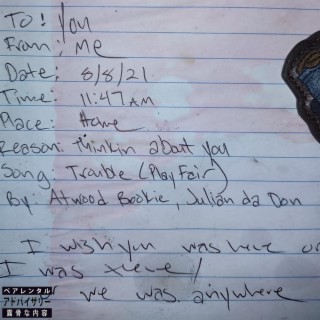 To! You
From: Me
Date: 8/8/21
Time: 11:47 AM
Place: Home
Reason: thinkin about you
Song: Trouble (Play Fair)
By: Atwood Bookie, Julian da Don
I wish you was here or
I was there/
we was anywhere
ペアレンタル
アドバイザリー
露骨な内容